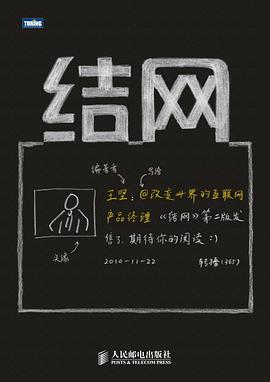 TURING
结网
编著者
写给
王坚:@改变世界的互联网
产品经理《结网》第二版发
售了,期待你的阅读:)
头像
2010-11-22
转播(365)
人民邮电出版社
POSTS & TELECOM PRESS